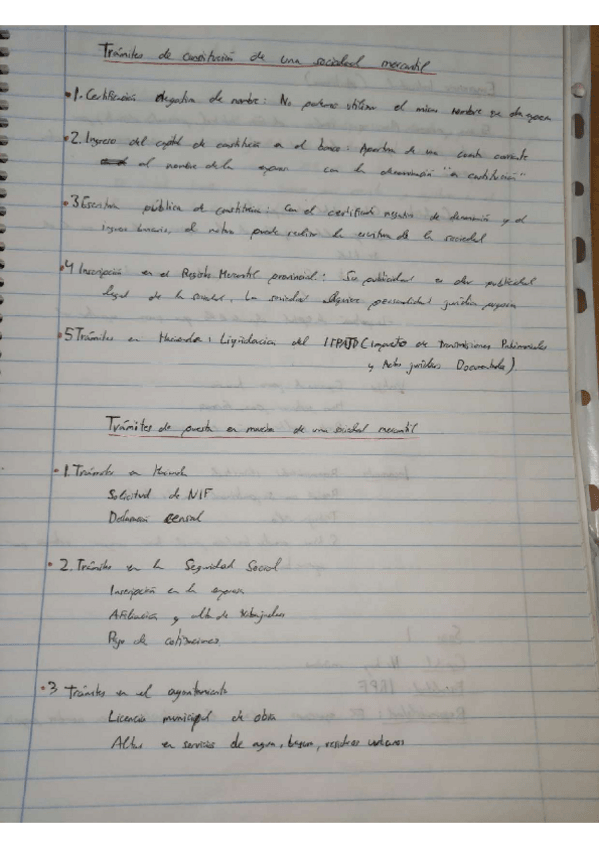 Trámites de constitución de una sociedad mercantil
1. Certificación negativa de nombre: No podemos utilizar el mismo nombre que otra empresa
2. Ingreso del capital de constitución en el banco: Apertura de una cuenta corriente
al nombre de la empresa con la denominación "en constitución"
3 Escritura pública de constitución: Con el certificado negativo de denominación y el
ingreso bancario, el notario puede realizar la escritura de la sociedad
4 Inscripción en el Registro Mercantil provincial: Su publicidad es dar publicidad
legal de la sociedad. La sociedad adquiere personalidad jurídica propia
5 Trámites en Hacienda: Liquidacion del ITPAJD (Impuesto de Transmisiones Patrimoniales
y Actos jurídicos Documentados)
Trámites de puesta en marcha de una sociedad mercantil
1. Trámites en Hacienda
Solicitud de NIF
Declaración censal
2. Trámites en la Seguridad Social
Inscripción en la empresa
Afiliación y alta de trabajadores
Pago de cotizaciones
3 Trámites en el ayuntamiento
Licencia municipal de obra
Altas en servicios de agua, basura, residuos urbanos